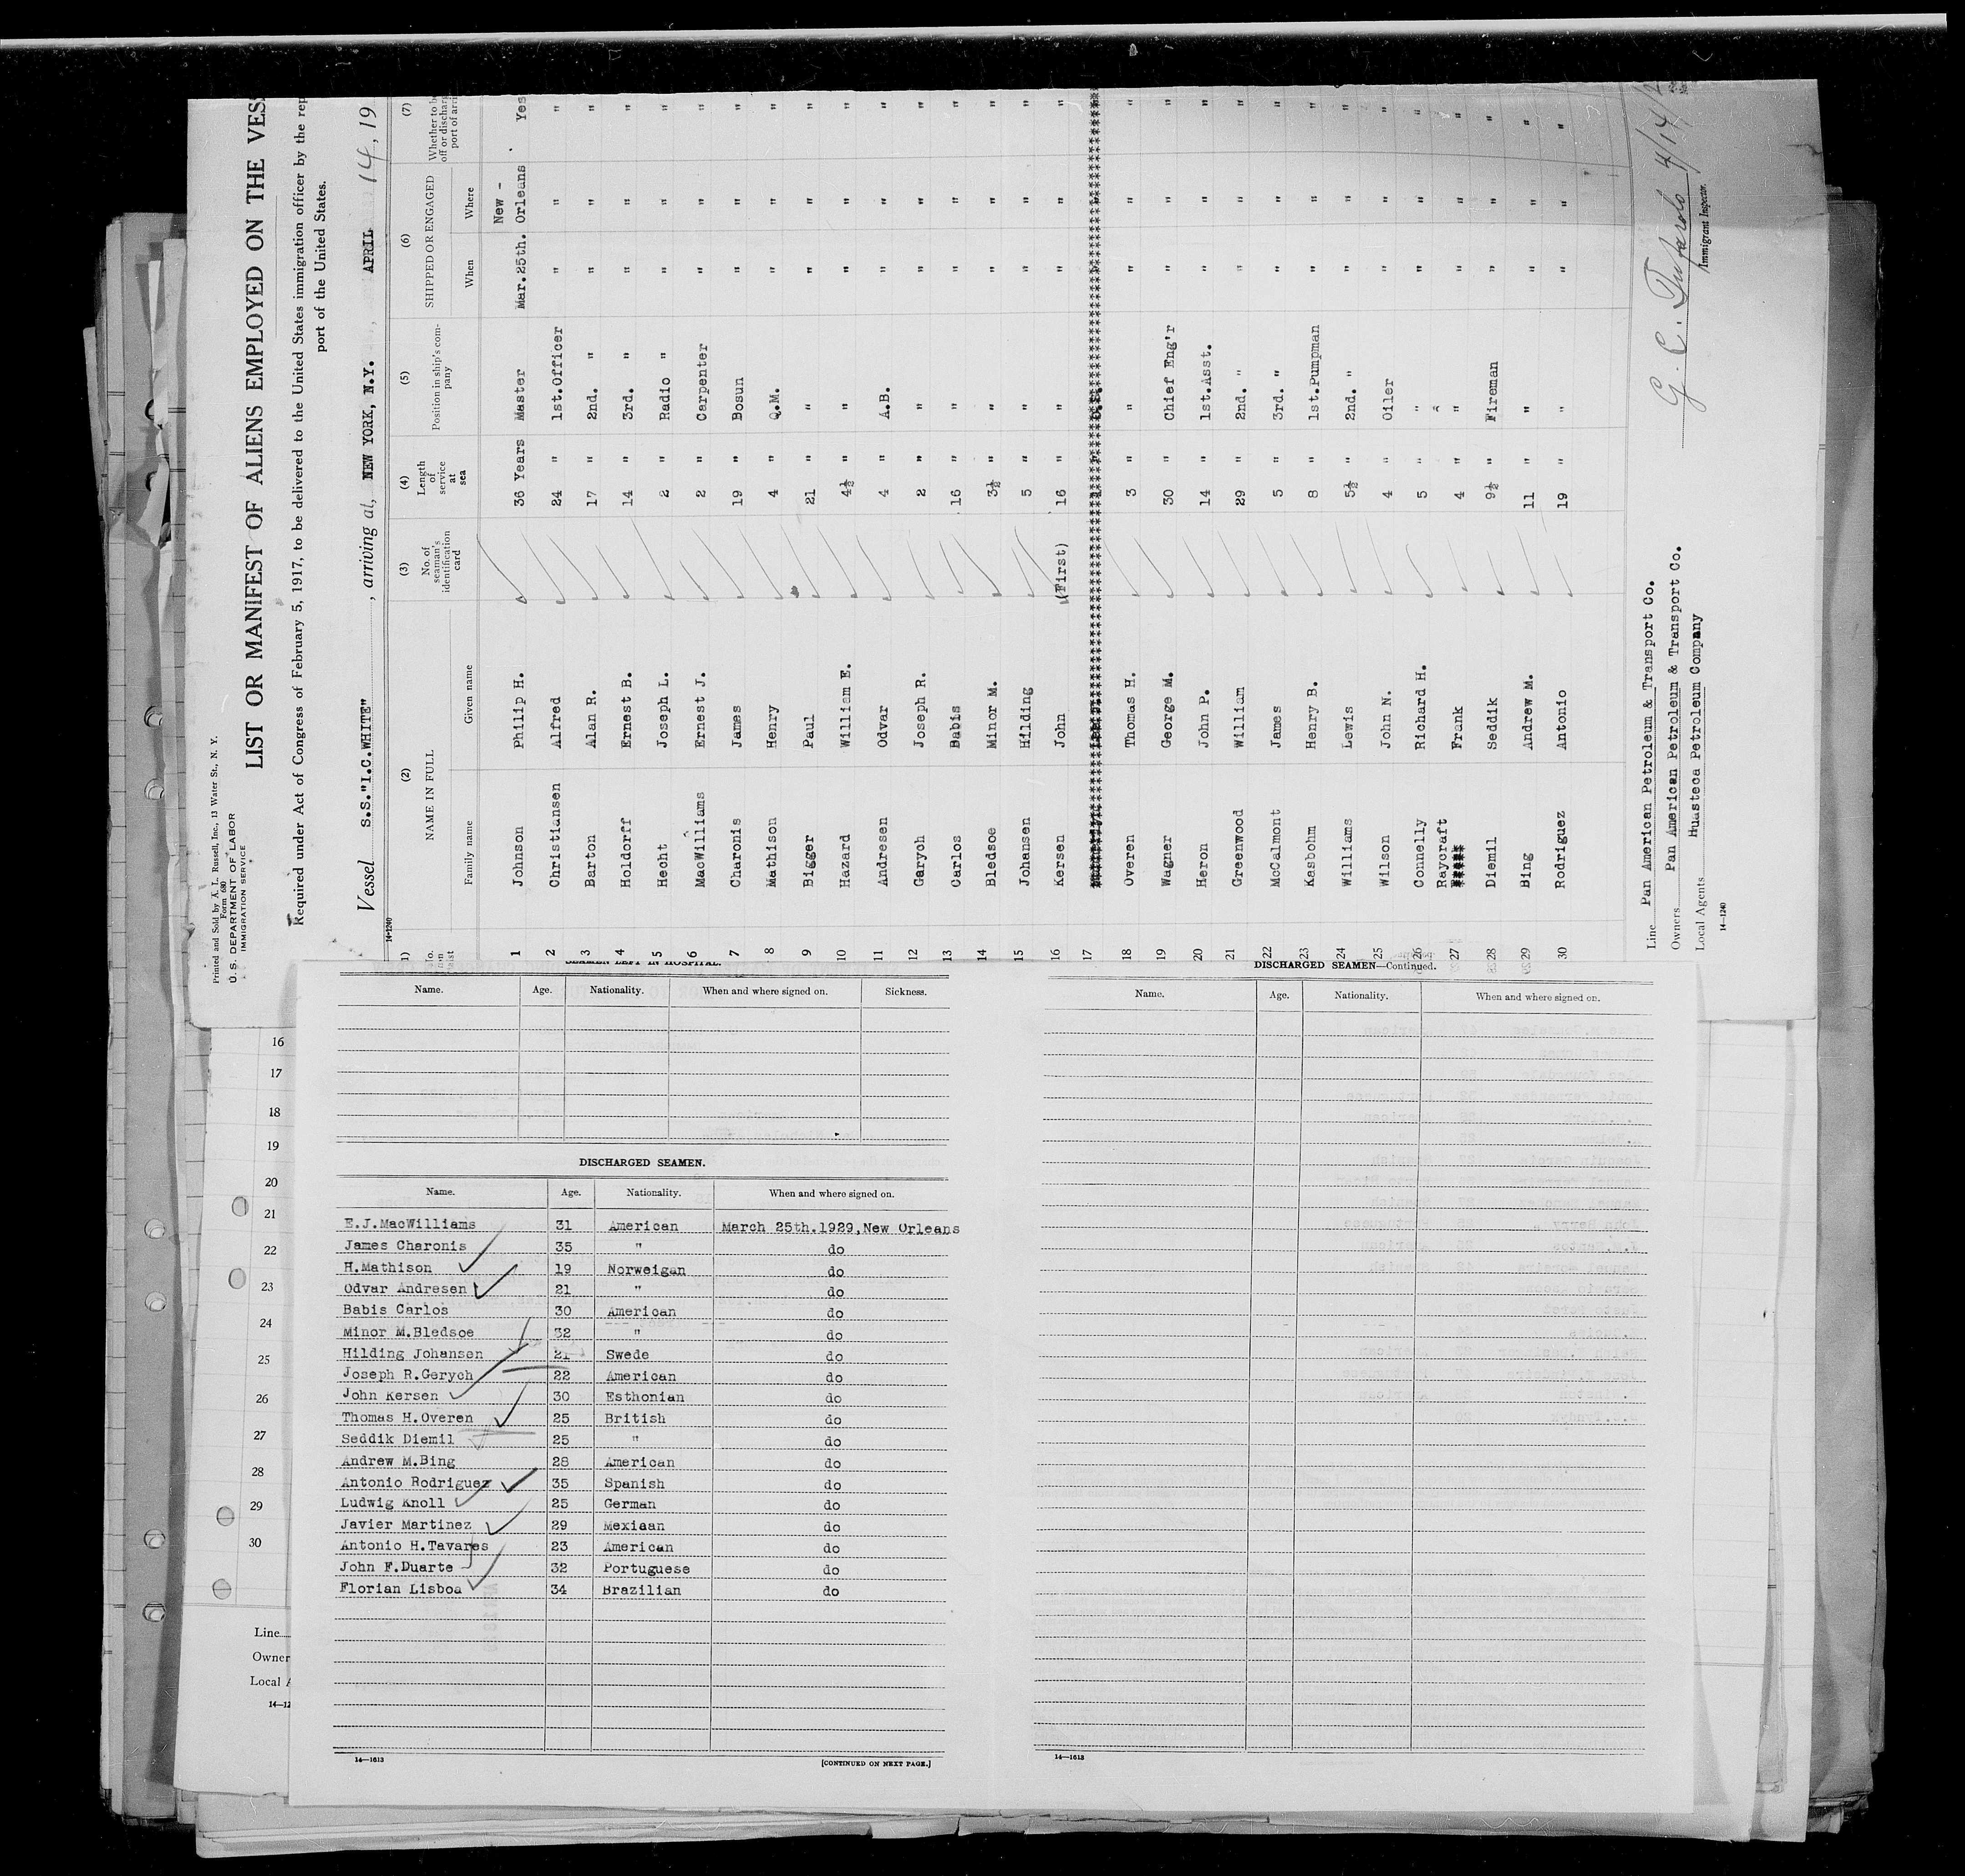 Printed and Sold by A. L. Russell, Inc., 13 Water St., N. Y.
Form 680
U. S. DEPARTMENT OF LABOR
IMMIGRATION SERVICE
LIST OR MANIFEST OF ALIENS EMPLOYED ON THE VES
Required under Act of Congress of February 5, 1917, to be delivered to the United States immigration officer by the rep
port of the United States.
Vessel S.S."I.C.WHITE", arriving at, NEW YORK, N.Y., APRIL 14, 19
14-1240
(2) (3) (4) (5) (6) (7)
NAME IN FULL No. of seaman's identification card Length of service at sea Position in ship's company SHIPPED OR ENGAGED Whether to be
Family name Given name When Where
New -
1 Johnson Philip H. 36 Years Master Mar.25th. Orleans Yes
2 Christiansen Alfred 24 " 1st.Officer " " "
3 Barton Alan R. 17 " 2nd. " " " "
4 Holdorff Ernest B. 14 " 3rd. " " " "
5 Hecht Joseph L. 2 " Radio " " " "
6 MacWilliams Ernest J. 2 " Carpenter " " "
7 Charonis James 19 " Bosun " " "
8 Mathison Henry 4 " Q.M. " " "
9 Bigger Paul 21 " " " " "
10 Hazard William E. 4½ " " " " "
11 Andresen Odvar 4 " A.B. " " "
12 Garych Joseph R. 2 " " " " "
13 Carlos Babis 16 " " " " "
14 Bledsoe Minor M. 3½ " " " " "
15 Johansen Hilding 5 " " " " "
16 Kersen John (First) 16 " " " " "
17
18 Overen Thomas H. 3 " " " " "
19 Wagner George M. 30 " Chief Eng'r " " "
20 Heron John P. 14 " 1st.Asst. " " "
21 Greenwood William 29 " 2nd. " " " "
22 McCalmont James 5 " 3rd. " " " "
23 Kasbohm Henry B. 8 " 1st.Pumpman " " "
24 Williams Lewis 5½ " 2nd. " " " "
25 Wilson John N. 4 " Oiler " " "
26 Connelly Richard H. 5 " " " " "
27 Raycraft Frank 4 " " " " "
28 Diemil Seddik 9½ " Fireman " " "
29 Bing Andrew M. 11 " " " " "
30 Rodriguez Antonio 19 " " " " "
Line Pan American Petroleum & Transport Co.
Owners Pan American Petroleum & Transport Co.
Local Agents Huasteca Petroleum Company
14-1240
4/14/2
Immigrant Inspector.
SEAMEN LEFT IN HOSPITAL.
Name. Age. Nationality. When and where signed on. Sickness.
DISCHARGED SEAMEN.
Name. Age. Nationality. When and where signed on.
E.J.MacWilliams 31 American March 25th.1929,New Orleans
James Charonis 35 " do
H.Mathison 19 Norweigan do
Odvar Andresen 21 " do
Babis Carlos 30 American do
Minor M.Bledsoe 32 " do
Hilding Johansen 21 Swede do
Joseph R.Gerych 22 American do
John Kersen 30 Esthonian do
Thomas H.Overen 25 British do
Seddik Diemil 25 " do
Andrew M.Bing 28 American do
Antonio Rodriguez 35 Spanish do
Ludwig Knoll 25 German do
Javier Martinez 29 Mexiaan do
Antonio H.Tavares 23 American do
John F.Duarte 32 Portuguese do
Florian Lisboa 34 Brazilian do
14—1613
[CONTINUED ON NEXT PAGE.]
DISCHARGED SEAMEN—Continued.
Name. Age. Nationality. When and where signed on.
14—1613
16
17
18
19
20
21
22
23
24
25
26
27
28
29
30
Line
Owner
Local A
14—12